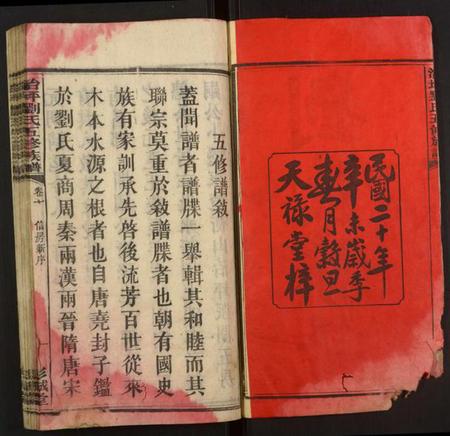 民國二十年
辛未歲季
春月穀旦
天祿堂梓
五修譜敘
蓋聞譜者譜牒一舉輯其和睦而其
聯宗莫重於敘譜牒者也朝有國史
族有家訓承先啓後流芳百世從來
木本水源之根者也自唐堯封子鑑
於劉氏夏商周秦兩漢兩晉隋唐宋
劉氏五修族譜
卷
序
彭城堂